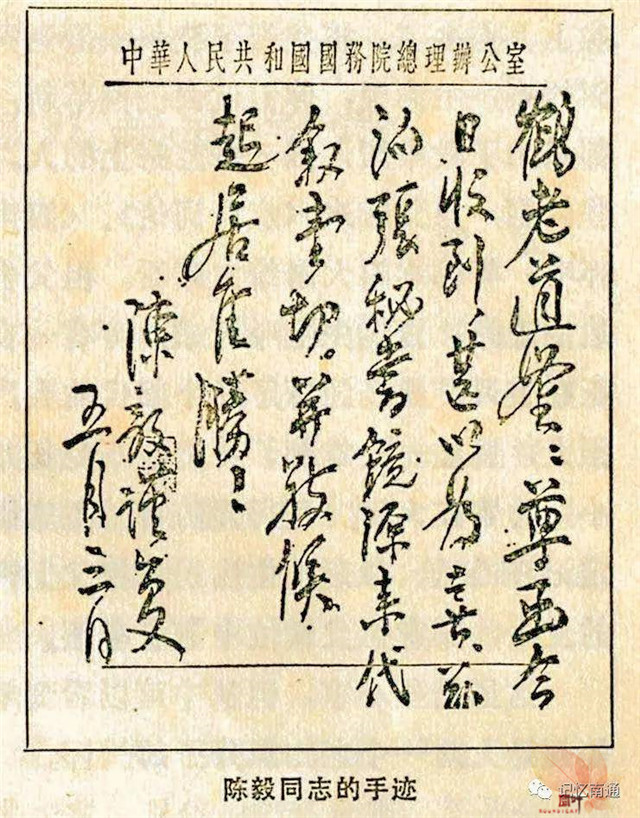 中華人民共和國國務院總理辦公室
鶴老道鉴：尊函今
日收到，甚以为喜。兹
派張秘書鏡源来代
叙壹切。并敬候
起居佳勝！
陳毅謹复
五月三日
陈毅同志的手迹
记忆南通